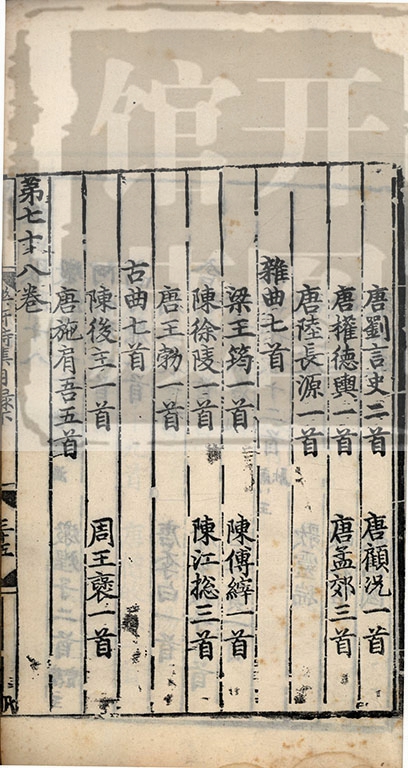 唐劉言史二首　唐顧況一首
唐權德輿一首　唐孟郊三首
唐陸長源一首
雜曲七首
梁王筠一首　陳傅縡一首
陳徐陵一首　陳江総三首
唐王勃一首
古曲七首
陳後主一首　周王褒一首
唐施肩吾五首
第七十八卷
三十五
开
馆
图